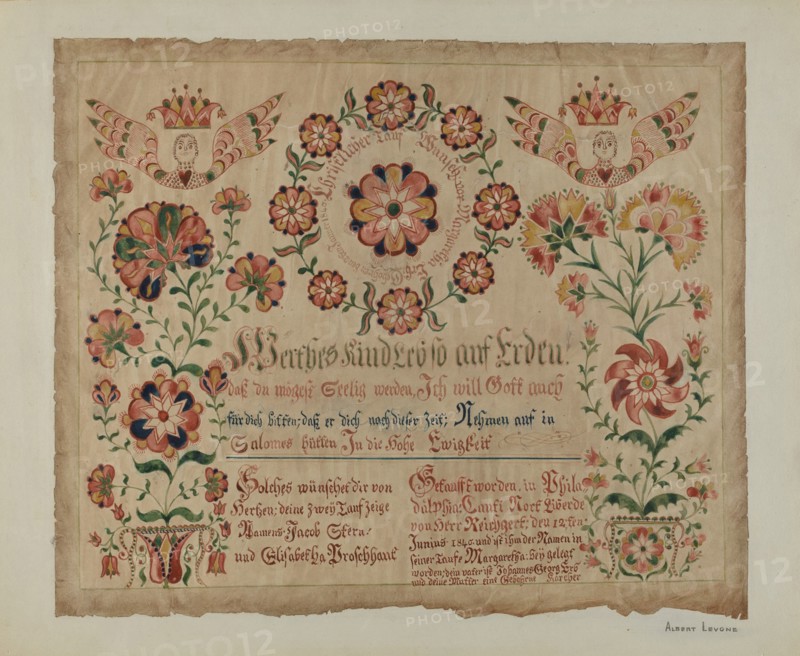 Christlicher Tauf Wunsch vor Margaretha
Werthes Kind Leb so auf Erden!
daß du mögest Seelig werden, Ich will Gott auch
für dich bitten; daß er dich nach dieser Zeit; Nehmen auf in
Salomos hütten In die Hohe Ewigkeit
Solches wünschet dir von
Hertzen; deine zwey Tauf zeige
Namens: Jacob Stern:
und Elisabetha Proschhaut
Getaufft worden, in Phila
dalphia: Caunti
von Herr Reichgert; den 12ten
Junius 1840 und ist ihm der Namen in
seiner Taufe Margaretha: bey gelegt
worden; dein vater ist Johannes Georg
und deine Mutter eine Karcher
ALBERT LEVONE
PHOTO12